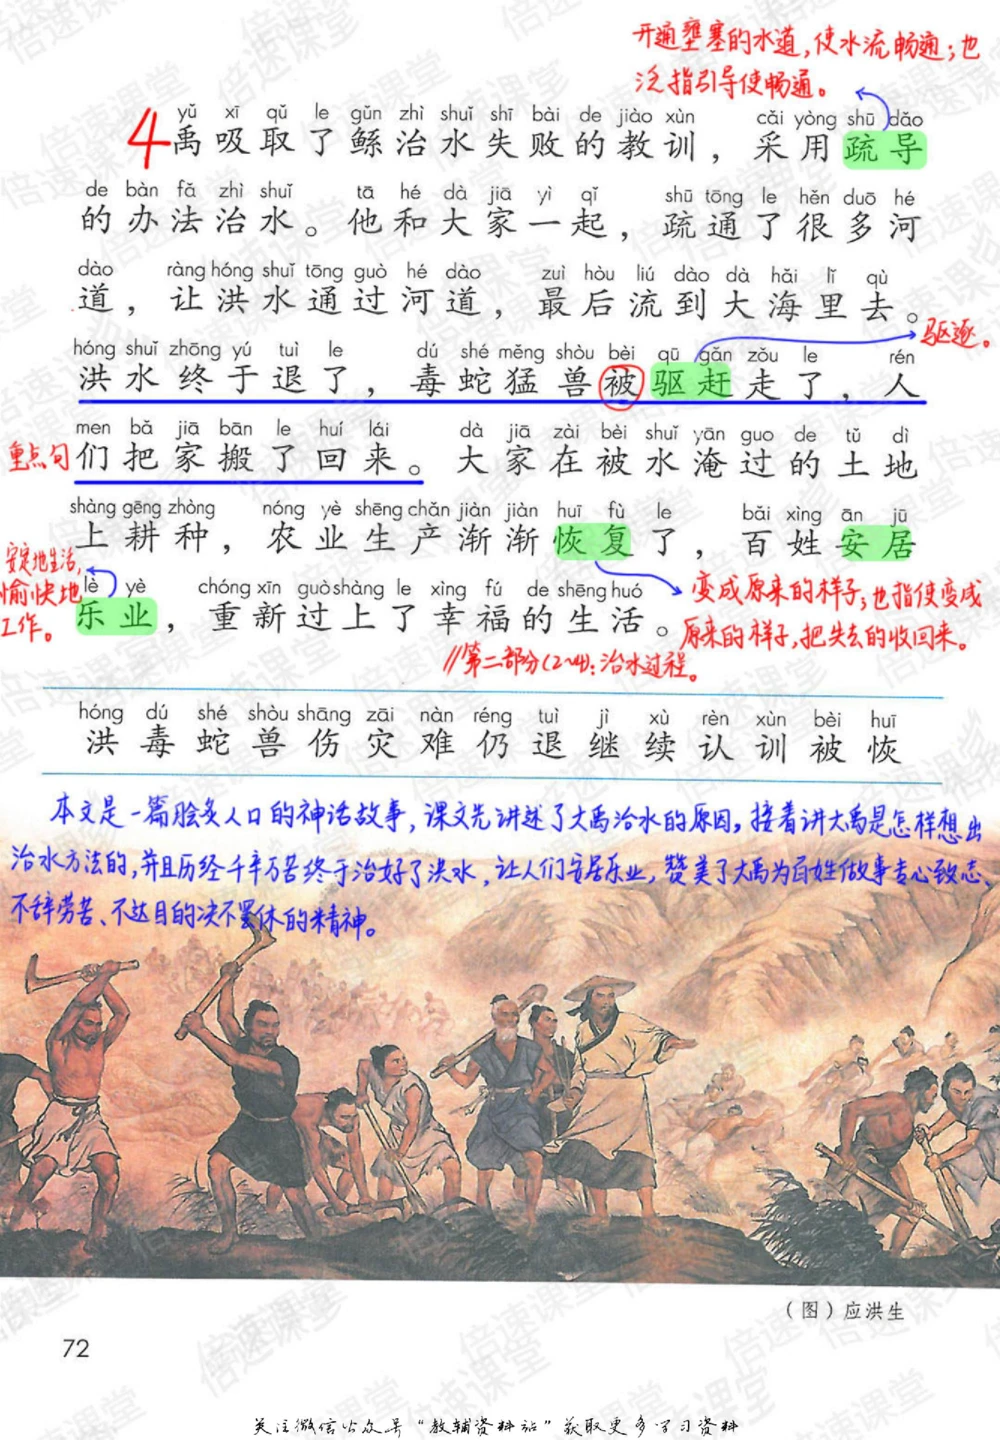 开通壅塞的水道，使水流畅通；也
泛指引导使畅通。
yǔ xī qǔ le gǔn zhì shuǐ shī bài de jiào xùn cǎi yòng shū dǎo
4禹吸取了鲧治水失败的教训，采用疏导
de bàn fǎ zhì shuǐ tā hé dà jiā yì qǐ shū tōng le hěn duō hé
的办法治水。他和大家一起，疏通了很多河
dào ràng hóng shuǐ tōng guò hé dào zuì hòu liú dào dà hǎi lǐ qù
道，让洪水通过河道，最后流到大海里去。
驱逐。
hóng shuǐ zhōng yú tuì le dú shé měng shòu bèi qū gǎn zǒu le rén
洪水终于退了，毒蛇猛兽被驱赶走了，人
men bǎ jiā bān le huí lái dà jiā zài bèi shuǐ yān guo de tǔ dì
重点句
们把家搬了回来。大家在被水淹过的土地
shàng gēng zhòng nóng yè shēng chǎn jiàn jiàn huī fù le bǎi xìng ān jū
上耕种，农业生产渐渐恢复了，百姓安居
安定地生活，
愉快地
工作。
lè yè chóng xīn guò shàng le xìng fú de shēng huó
乐业，重新过上了幸福的生活。
变成原来的样子；也指使变成
原来的样子，把失去的收回来。
//第二部分(2~4)：治水过程。
hóng dú shé shòu shāng zāi nàn réng tuì jì xù rèn xùn bèi huī
洪毒蛇兽伤灾难仍退继续认训被恢
本文是一篇脍炙人口的神话故事，课文先讲述了大禹治水的原因，接着讲大禹是怎样想出
治水方法的，并且历经千辛万苦终于治好了洪水，让人们安居乐业，赞美了大禹为百姓做事专心致志、
不辞劳苦、不达目的决不罢休的精神。
（图）应洪生
72
关注微信公众号“教辅资料站”获取更多学习资料
倍速课堂